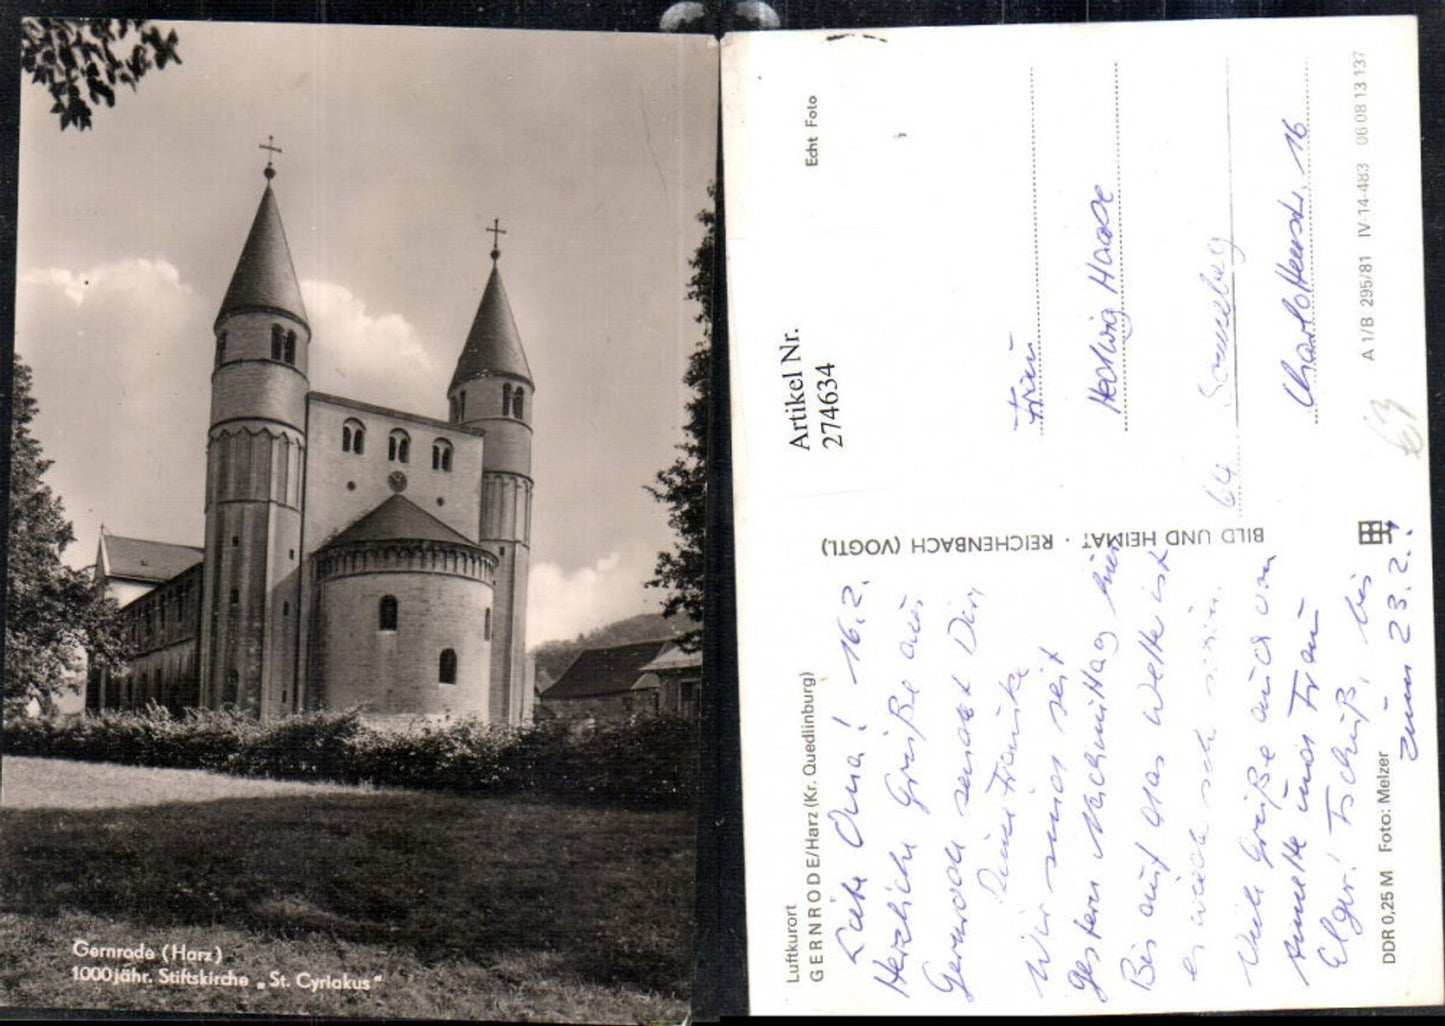 Gernrode (Harz)
1000jähr. Stiftskirche „St. Cyriakus“
Luftkurort
GERNRODE/Harz (Kr. Quedlinburg)
Liebe Oma! 16.2.
Herzliche Grüße aus
Gernrode sendet Dir,
Deine Frauke
Wir sind seit
gestern Nachmittag hier
Bis auf das Wetter ist
es sehr schön.
Viele Grüße auch von
Annette und Frau
Elger! Tschüß, bis
zum 23.2.!
DDR 0,25 M Foto: Melzer
BILD UND HEIMAT · REICHENBACH (VOGTL)
Artikel Nr.
274634
Echt Foto
Frau
Hedwig Haase
64 Sonneberg
Charlottenstr. 16
A 1/B 295/81 IV-14-483 06 08 13 137